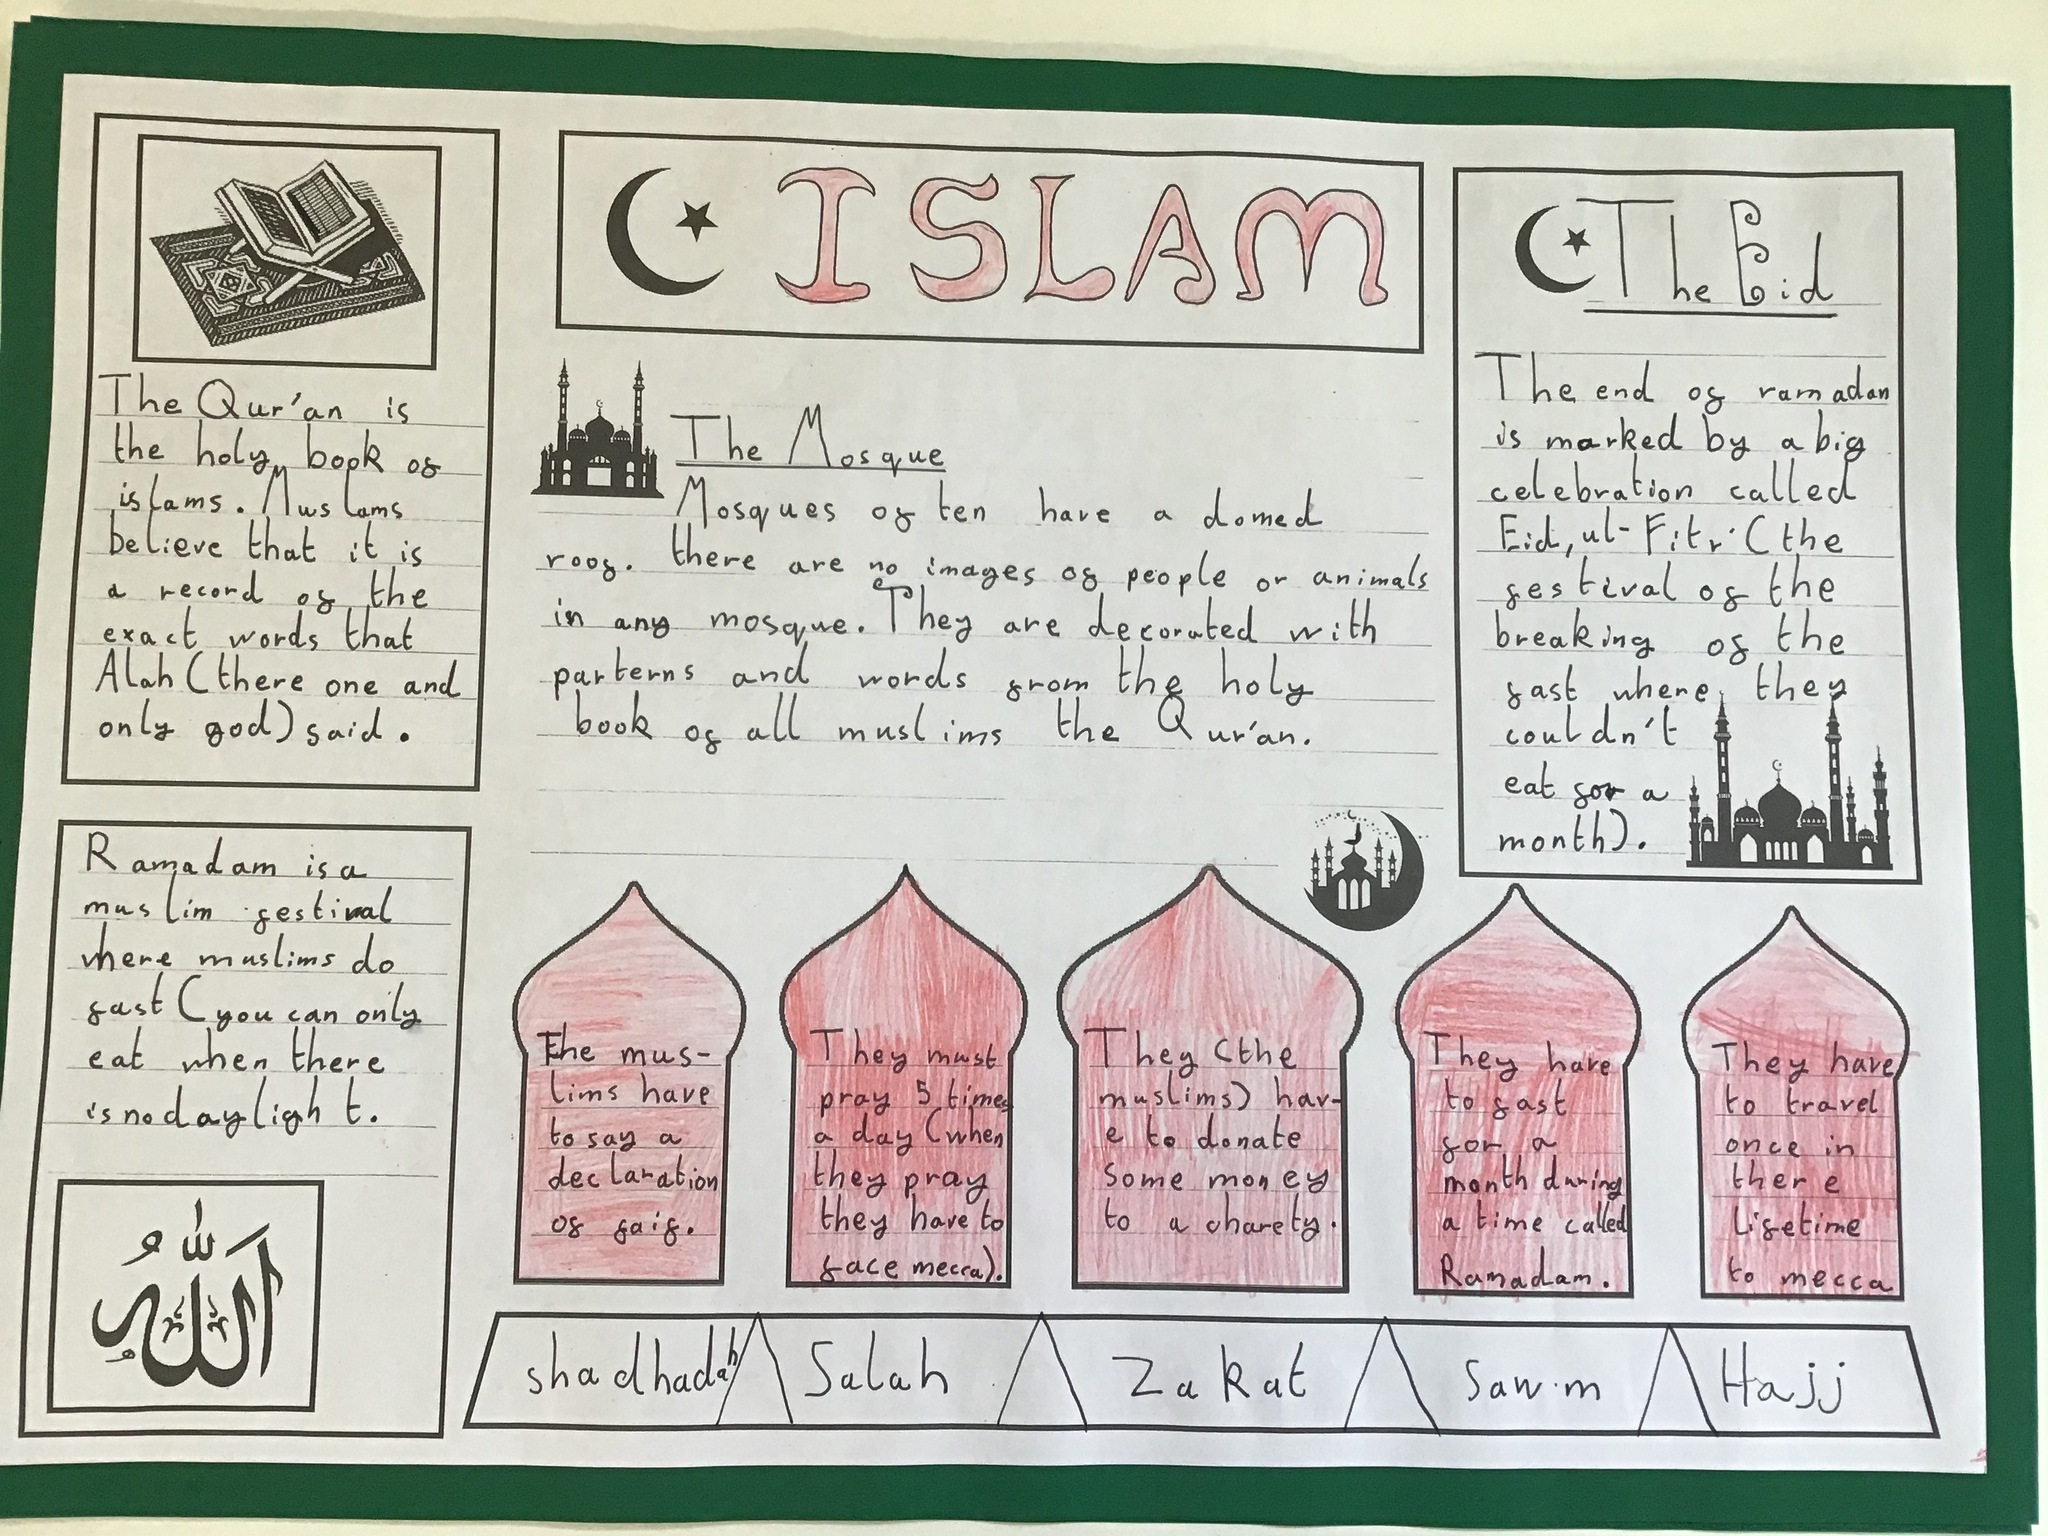 ISLAM
The Qur'an is
the holy book of
islams. Muslams
believe that it is
a record of the
exact words that
Alah (there one and
only god) said.
Ramadam is a
muslim festival
where muslims do
fast (you can only
eat when there
is no daylight.
الله
The Mosque
Mosques often have a domed
roof. there are no images of people or animals
in any mosque. They are decorated with
parterns and words from the holy
book of all muslims the Qur'an.
The Eid
The end of ramadan
is marked by a big
celebration called
Eid, ul-Fitr. (the
festival of the
breaking of the
fast where they
couldn't
eat for a
month).
The mus-
lims have
to say a
declaration
of faif.
They must
pray 5 times
a day (when
they pray
they have to
face mecca).
They (the
muslims) hav-
e to donate
some money
to a charety.
They have
to fast
for a
month during
a time called
Ramadam.
They have
to travel
once in
there
lifetime
to mecca
shadhadah
Salah
Zakat
Sawm
Hajj